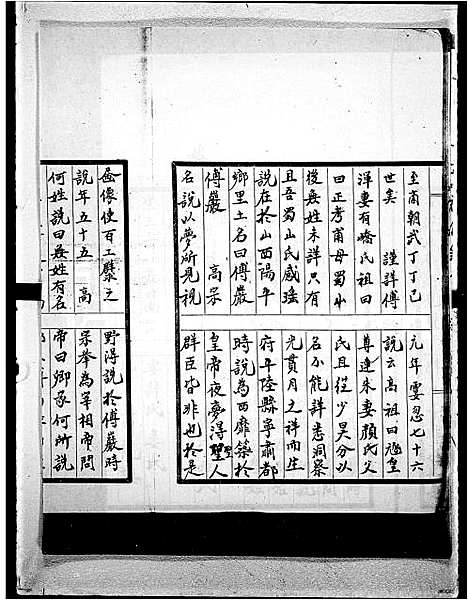 至商朝武丁丁巳元年雯忍七十六
世矣 謹詳傅說云高祖曰旭皇
渾妻有嶠氏祖曰尊達朱妻顏氏父
曰正考甫母蜀山氏且從少昊分以
後無姓未詳只有名不能詳悉洞察
且吾蜀山氏感瑤光貫月之祥而生
說在於山西陽平府平陸縣寧肅都
鄉里土名曰傅巖時說為西靡築於
傅巖 高宗皇帝夜夢得聖人
名說以夢所見視群臣皆非也於是
畫像使百工營之野得說於傅巖時
說年五十五 高宗舉為宰相帝問
何姓說曰無姓有名帝曰卿家何所說